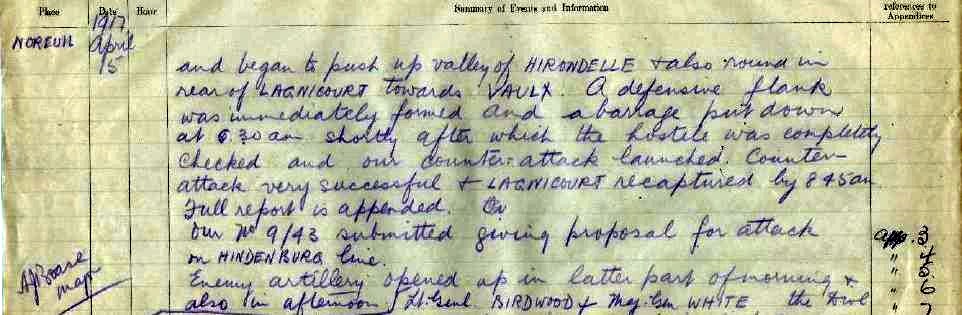 Place Date Hour Summary of Events and Information references to Appendices
NOREUIL 1917 April 15
and began to push up valley of HIRONDELLE & also round in
rear of LAGNICOURT towards VAULX. A defensive flank
was immediately formed and a barrage put down
at 6.30 am shortly after which the hostile was completely
checked and our counter-attack launched. Counter-
attack very successful & LAGNICOURT recaptured by 8 45 am.
Full report is appended.
Our No 9/43 submitted giving proposal for attack App. 3
on HINDENBURG line. " 4
Enemy artillery opened up in latter part of morning & " 5
" 6
also in afternoon Lt. Genl BIRDWOOD & Maj. Gen WHITE the Divl " 7
map